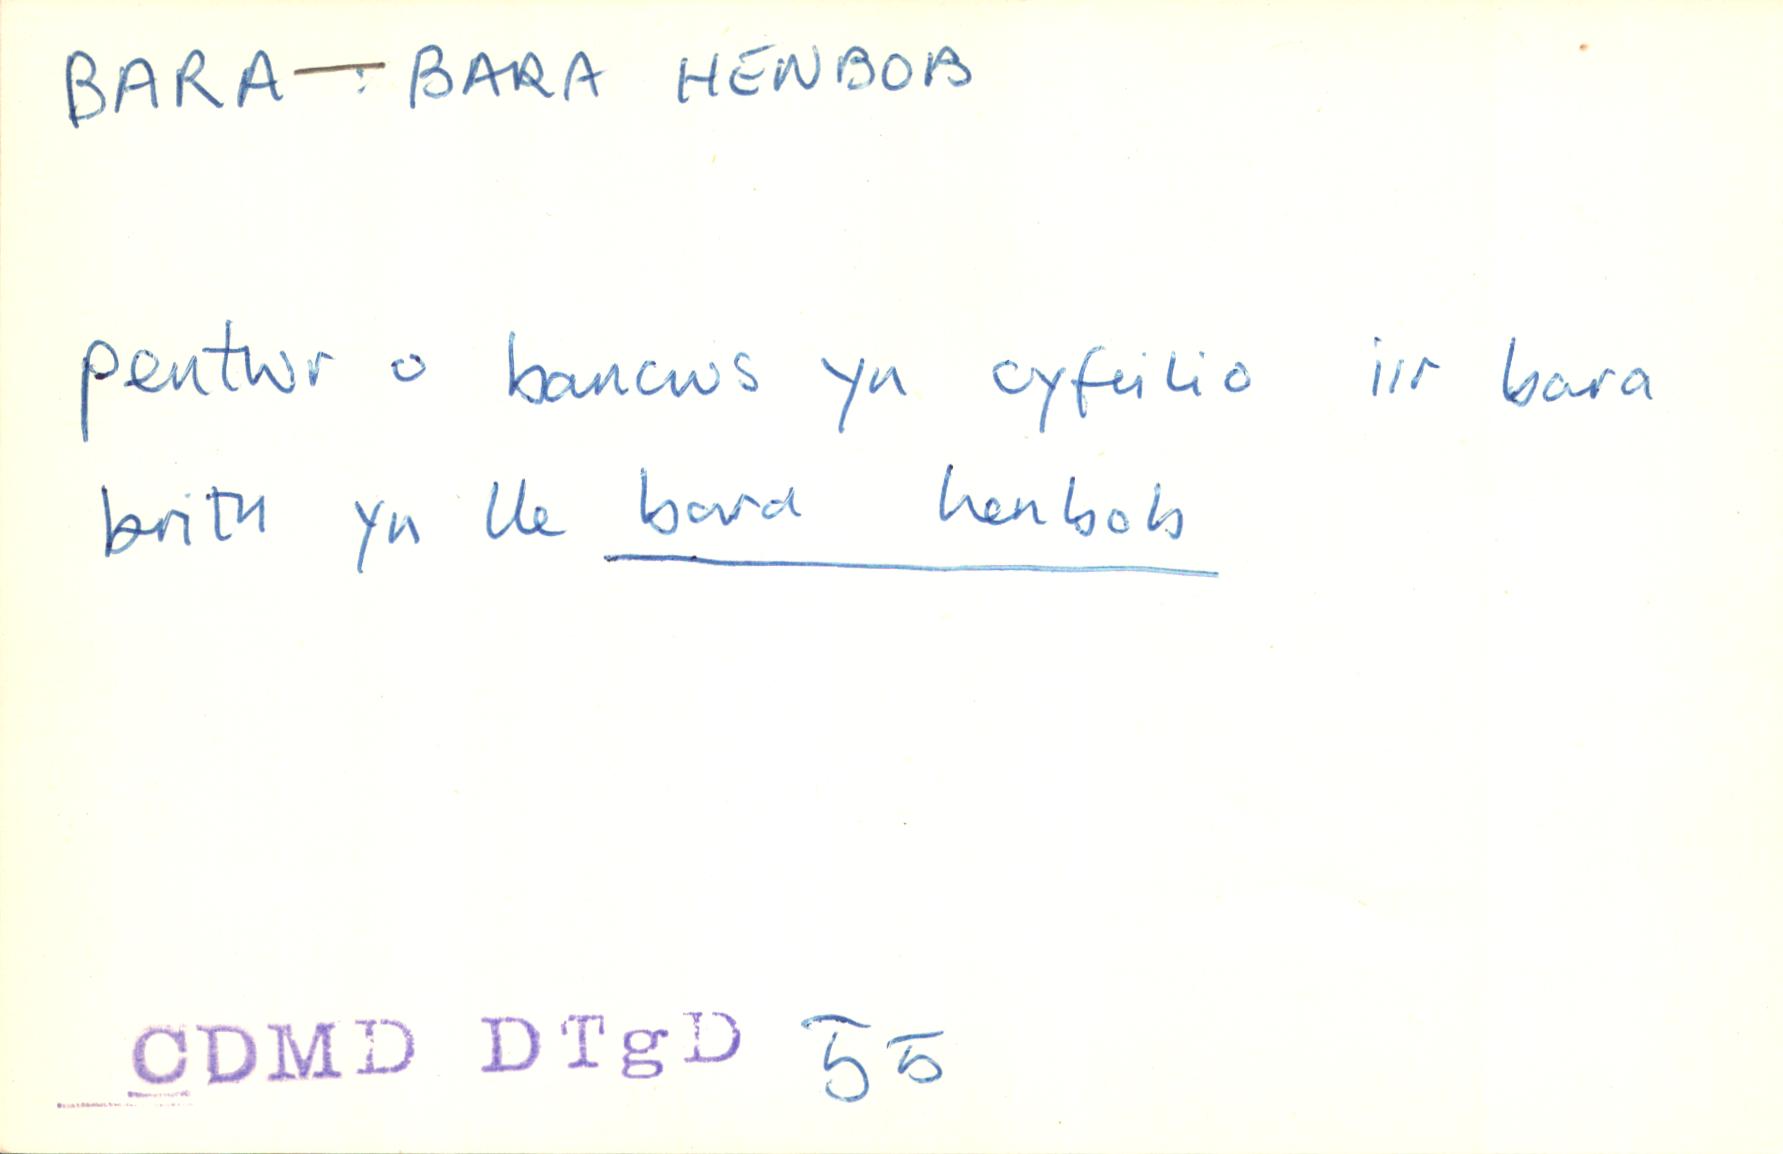 BARA — : BARA HENBOB
pentwr o bancws yn cyfeilio i'r bara
brith yn lle bara henbob
CDMD DTgD 55